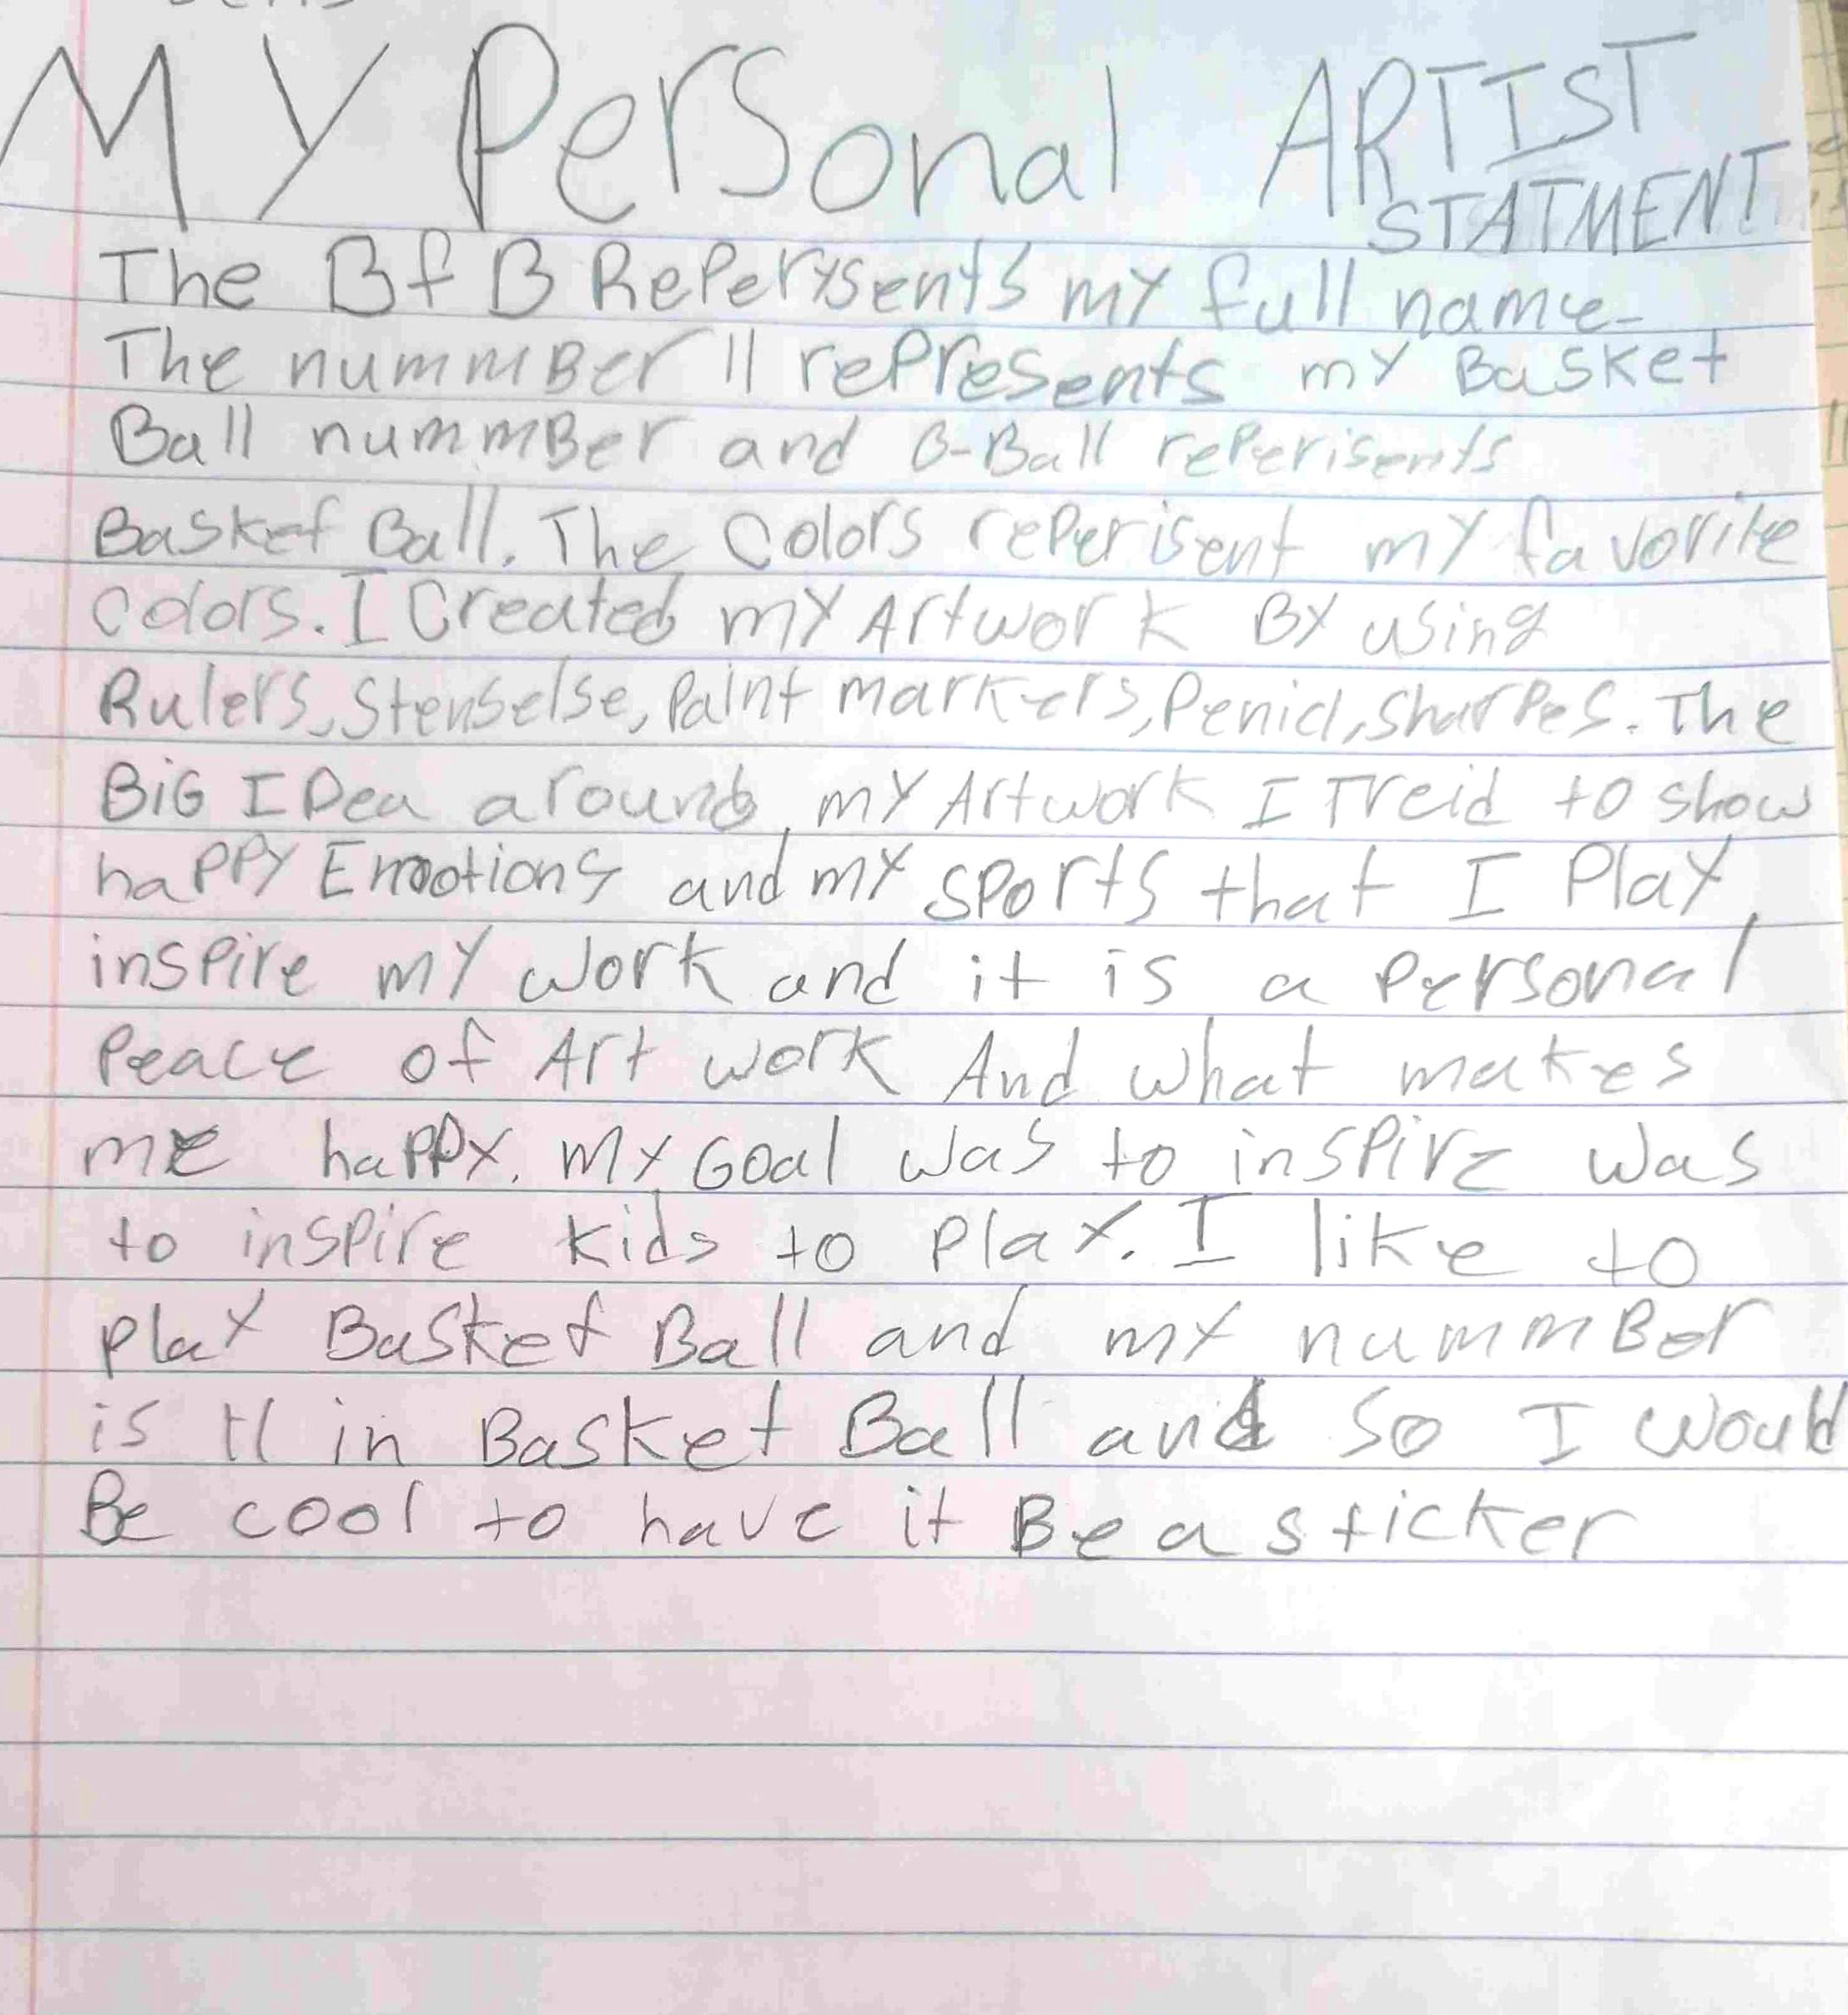 MY Personal ARTIST
STATMENT
The BfB Reperysents my full name.
The nummBer 11 rePresents my Basket
Ball nummBer and B-Ball reperisents
Basket Ball. The Colors reperisent my favorite
Colors. I Created my Artwork By using
Rulers, Stenselse, Paint markers, Penicl, Sharpes. The
BiG IDea around my Artwork I Treid to show
happy Emotions and my sports that I Play,
inspire my work and it is a Personal
Peace of Art work And what makes
me happy. my Goal was to inspire was
to inspire kids to Play. I like to
play Basket Ball and my nummBer
is 11 in Basket Ball and so I would
Be cool to have it Be a sticker